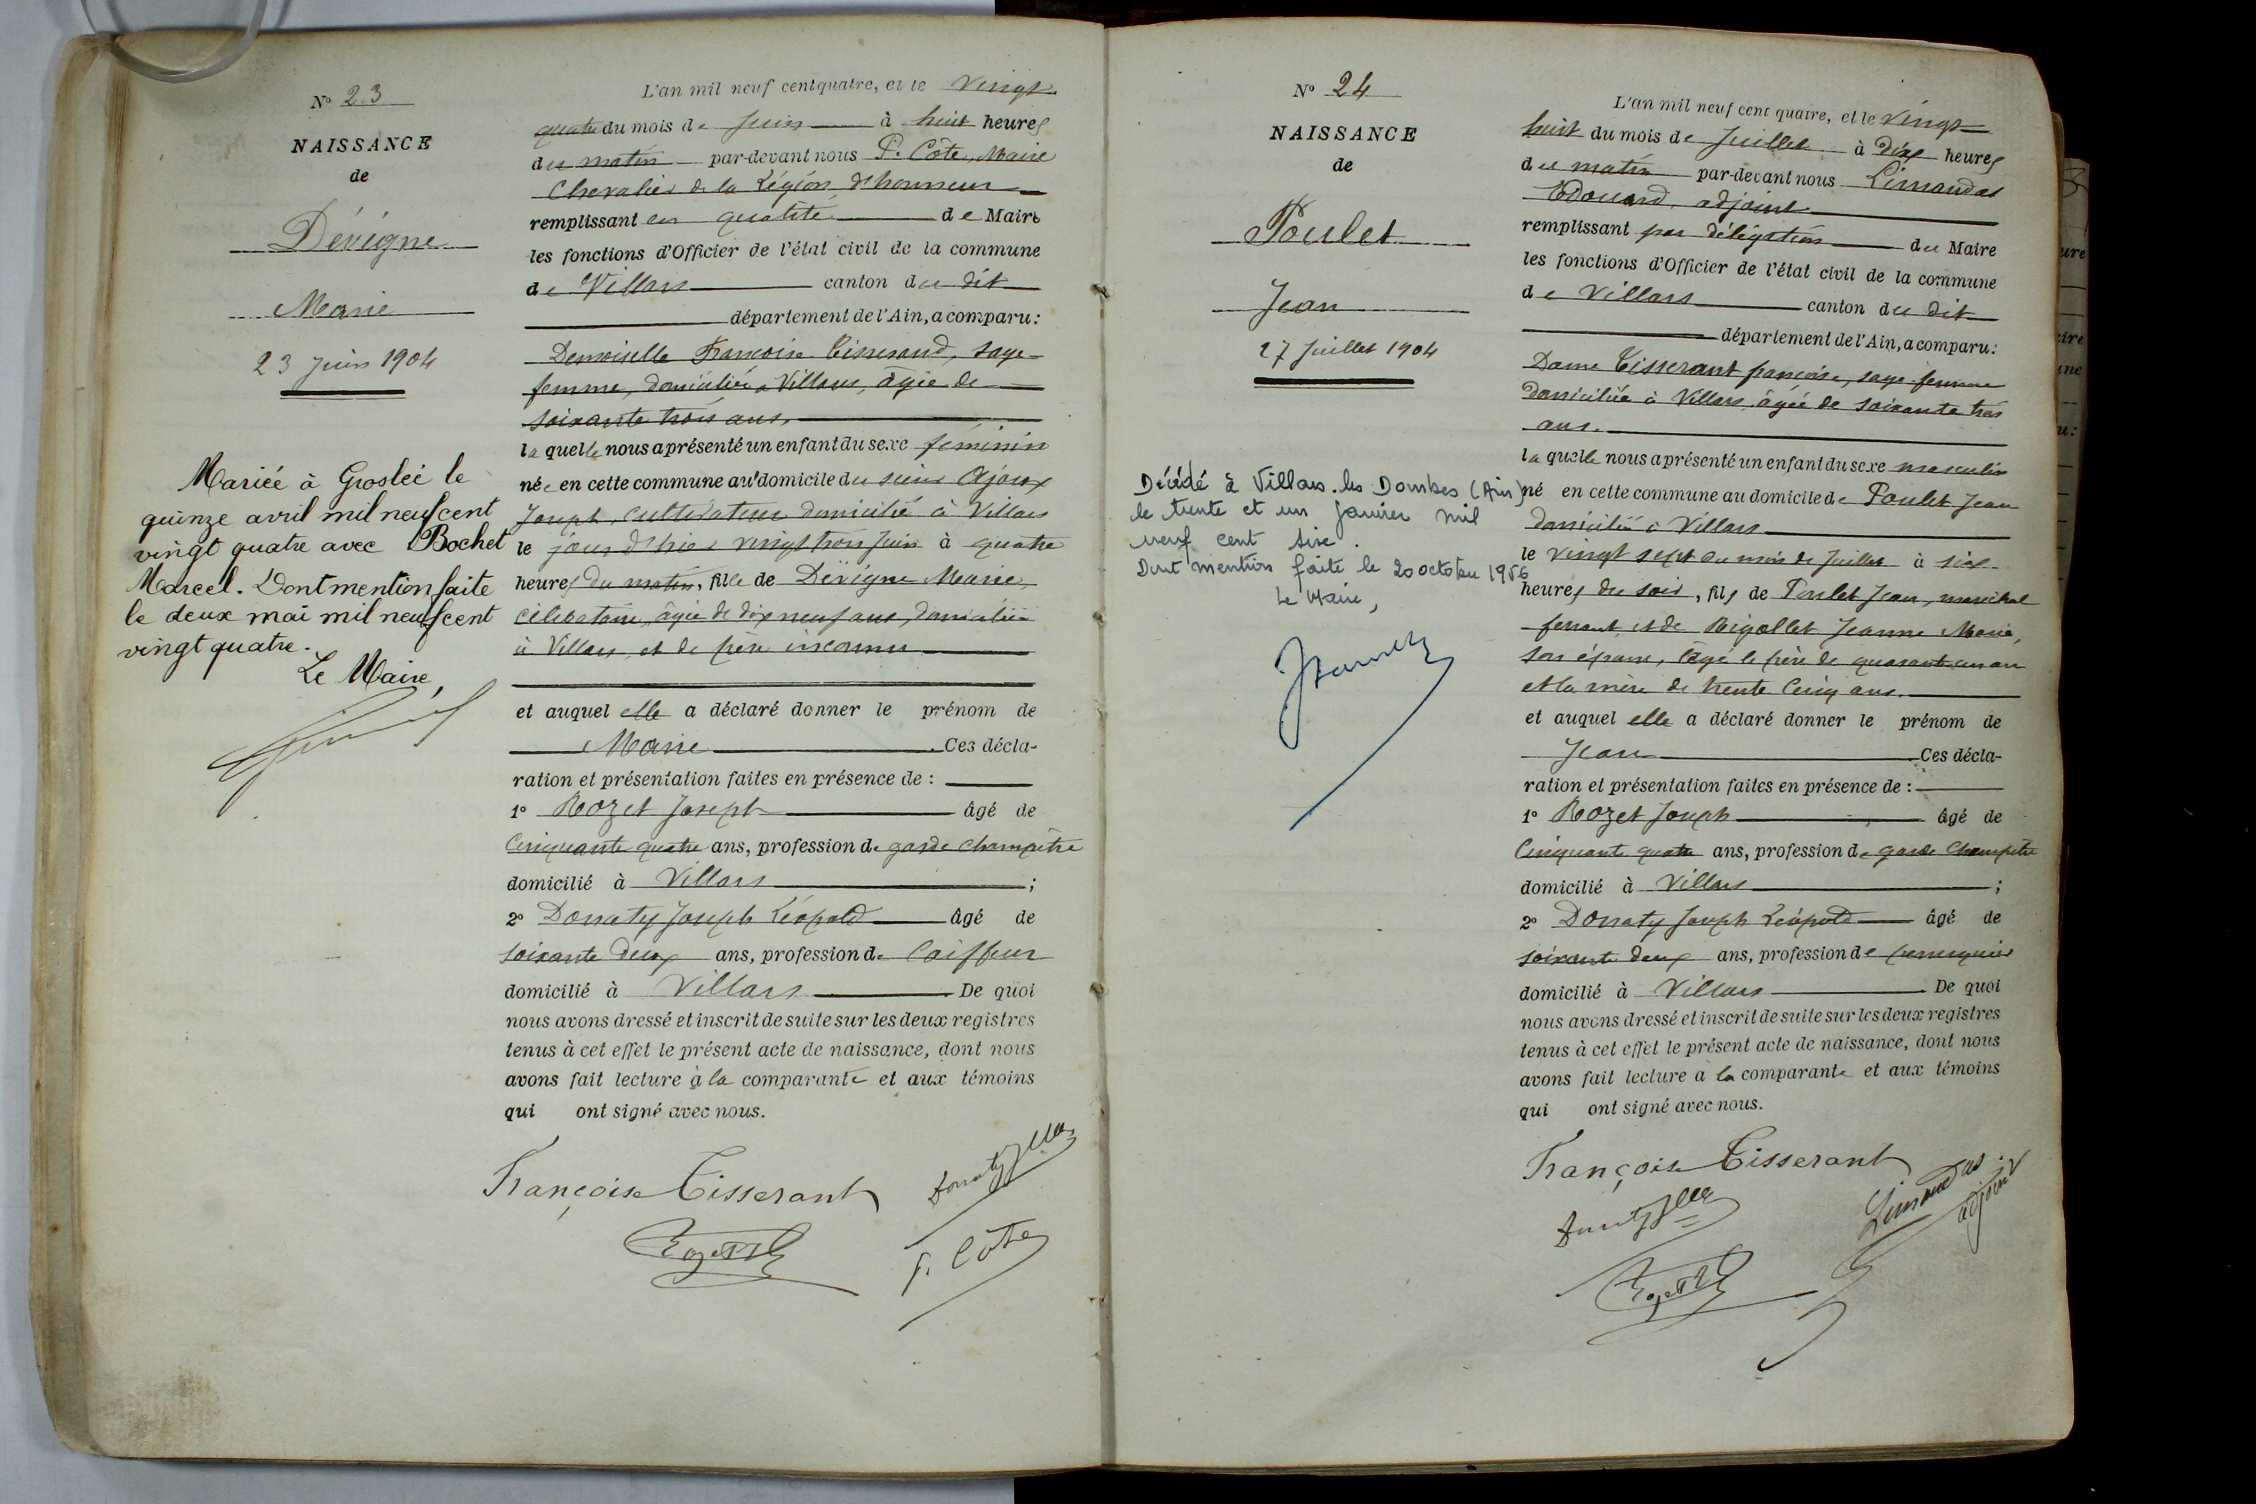 N° 23
NAISSANCE
de
Dévigne
Marie
23 Juin 1904
Mariée à Groslée le
quinze avril mil neuf cent
vingt quatre avec Bochet
Marcel. Dont mention faite
le deux mai mil neuf cent
vingt quatre.
Le Maire,
L'an mil neuf cent quatre, et le vingt
quatre du mois de Juin à huit heures
du matin par-devant nous P. Côte, Maire
Chevalier de la Légion d'honneur
remplissant en qualité de Maire
les fonctions d'Officier de l'état civil de la commune
de Villars canton du dit
département de l'Ain, a comparu:
Demoiselle Francoise Tisserand, sage-
femme, domiciliée à Villars, âgée de
soixante trois ans,
laquelle nous a présenté un enfant du sexe féminin
née en cette commune au domicile du sieur Ajoux
Joseph, cultivateur domicilié à Villars
le jour d'hier vingt trois juin à quatre
heures du matin, fille de Dévigne Marie,
célibataire, âgée de dix neuf ans, domiciliée
à Villars, et de père inconnu
et auquel elle a déclaré donner le prénom de
Marie Ces décla-
ration et présentation faites en présence de :
1° Rozet Joseph âgé de
Cinquante quatre ans, profession de garde champêtre
domicilié à Villars ;
2° Donaty Joseph Léopold âgé de
soixante deux ans, profession de Coiffeur
domicilié à Villars De quoi
nous avons dressé et inscrit de suite sur les deux registres
tenus à cet effet le présent acte de naissance, dont nous
avons fait lecture à la comparante et aux témoins
qui ont signé avec nous.
Françoise Tisserant
Donaty
Rozet
P. Côte
N° 24
NAISSANCE
de
Poulet
Jean
27 Juillet 1904
Décédé à Villars-les-Dombes (Ain)
le trente et un janvier mil
neuf cent six.
Dont mention faite le 20 octobre 1956
Le Maire,
L'an mil neuf cent quatre, et le vingt
huit du mois de Juillet à dix heures
du matin par-devant nous Limandas
Edouard, adjoint
remplissant par délégation du Maire
les fonctions d'Officier de l'état civil de la commune
de Villars canton du dit
département de l'Ain, a comparu:
Dame Tisserant françoise, sage-femme
domiciliée à Villars, âgée de soixante trois
ans.
laquelle nous a présenté un enfant du sexe masculin
né en cette commune au domicile de Poulet Jean
domicilié à Villars
le vingt sept du mois de Juillet à six
heures du soir, fils de Poulet Jean, maréchal
ferrant, et de Rigollet Jeanne Marie,
son épouse, âgé le père de quarante un an
et la mère de trente cinq ans.
et auquel elle a déclaré donner le prénom de
Jean Ces décla-
ration et présentation faites en présence de :
1° Rozet Joseph âgé de
Cinquante quatre ans, profession de garde champêtre
domicilié à Villars ;
2° Donaty Joseph Léopold âgé de
soixante deux ans, profession de perruquier
domicilié à Villars De quoi
nous avons dressé et inscrit de suite sur les deux registres
tenus à cet effet le présent acte de naissance, dont nous
avons fait lecture à la comparante et aux témoins
qui ont signé avec nous.
Françoise Tisserant
Donaty
Limandas
adjoint
Rozet